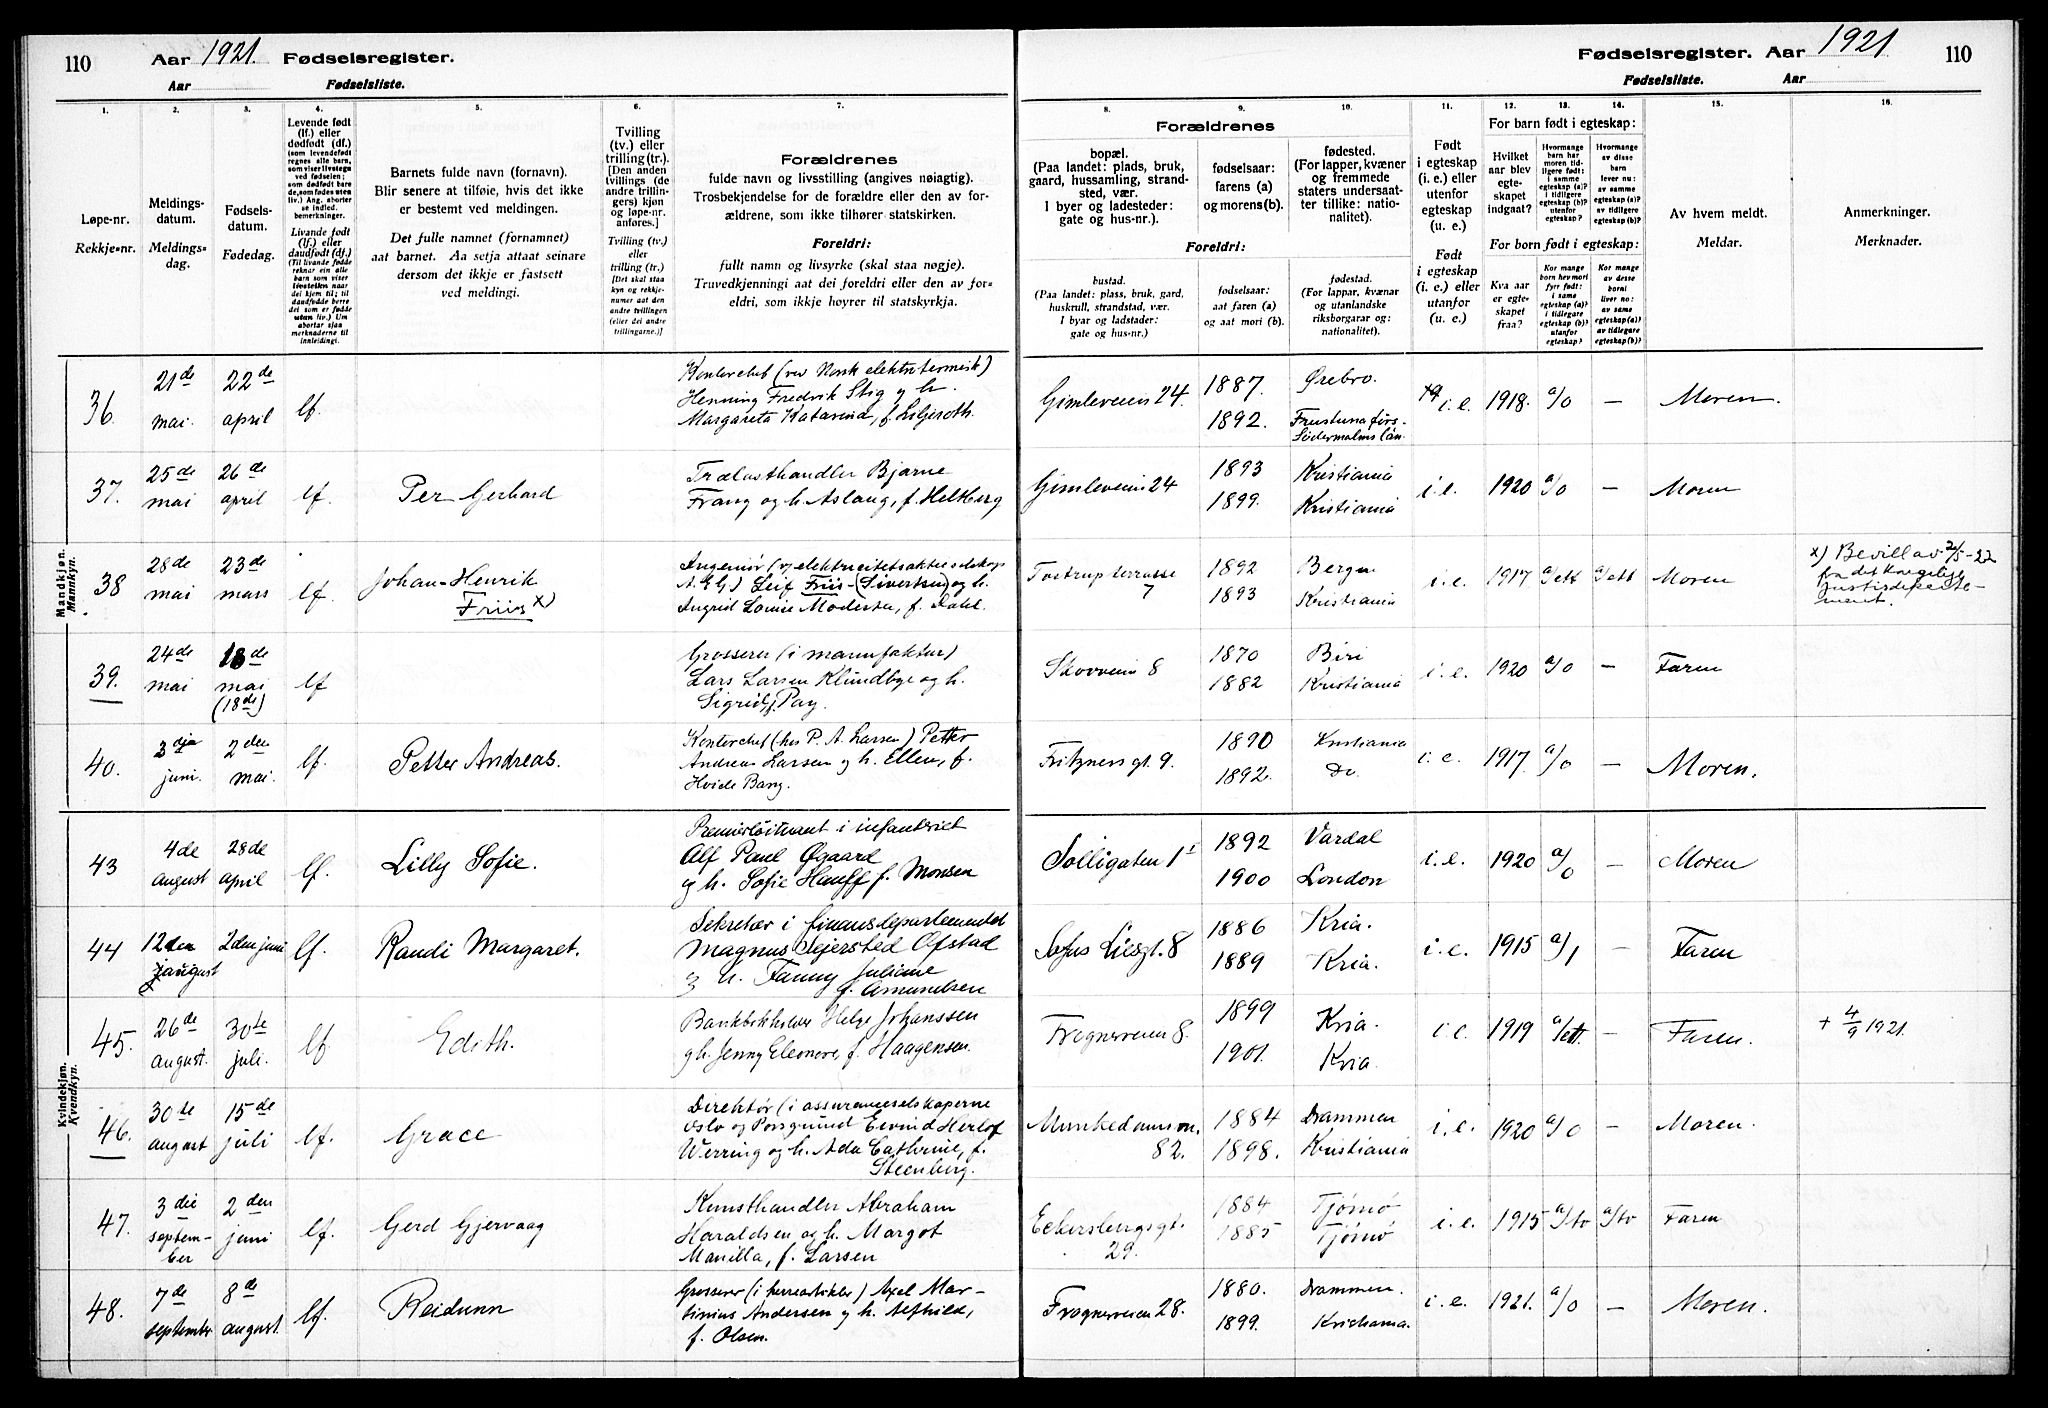 110
Aar 1921. Fødselsregister.
Aar Fødselsliste.
Fødselsregister. Aar 1921
Fødselsliste. Aar
110
1.
Løpe-nr.
Rekkje-nr.
2.
Meldings-
datum.
Meldings-
dag.
3.
Fødsels-
datum.
Fødedag.
4.
Levende født
(lf.) eller
dødfødt (df.)
5.
Barnets fulde navn (fornavn).
Blir senere at tilføie, hvis det ikke
er bestemt ved meldingen.
Det fulle namnet (fornamnet)
aat barnet. Aa setja attaat seinare
dersom det ikkje er fastsett
ved meldingi.
6.
Tvilling
(tv.) eller
trilling (tr.).
[Den anden
tvillings (de
andre trillin-
gers) kjøn
og løpe-nr.
anføres.]
Tvilling (tv.)
eller
trilling (tr.)
[Det skal staa
kyn og rekkje-
numer aat den
andre tvillingen
(eller dei andre
trillingarne.)]
7.
Forældrenes
fulde navn og livsstilling (angives nøiagtig).
Trosbekjendelse for de forældre eller den av for-
ældrene, som ikke tilhører statskirken.
Foreldri:
fullt namn og livsyrke (skal staa nøgje).
Truvedkjenningi aat dei foreldri eller den av for-
eldri, som ikkje høyrer til statskyrkja.
Forældrenes
8.
bopæl.
(Paa landet: plads, bruk,
gaard, hussamling, strand-
sted, vær.
I byer og ladesteder:
gate og hus-nr.).
9.
fødselsaar:
farens (a)
og morens (b).
10.
fødested.
(For lapper, kvæner
og fremmede
staters undersaat-
ter tillike: natio-
nalitet).
Foreldri:
bustad.
(Paa landet: plass, bruk, gard,
huskrull, strandstad, vær.
I byar og ladstader:
gate og hus-nr.)
fødselsaar:
aat faren (a)
og aat mori (b).
fødestad.
(For lappar, kvænar
og utanlandske
riksborgarar og:
nationalitet).
11.
Født
i egteskap
(i. e.) eller
utenfor
egteskap
(u. e.)
Født
i egteskap
(i. e.) eller
utanfor
(u. e.)
For barn født i egteskap:
12.
Hvilket
aar blev
egte-
skapet
indgaat?
13.
14.
For born født i egteskap:
Kva aar
er egte-
skapet
fraa?
15.
Av hvem meldt.
Meldar.
16.
Anmerkninger.
Merknader.
Mandkjøn.
Mannkyn.
36. 21de mai. 22de april lf. Kontorchef (ved Norsk elektrotermisk)
Henning Fredrik Stig og h.
Margareta Katarina, f. Liljeroth. Gimleveien 24. 1887. 1892. Ørebro. i. e. 1918. a/0 — Moren.
37. 25de mai 26de april lf. Per Gerhard Trælasthandler Bjarne
Frang og h. Aslaug, f. Heltberg Gimleveien 24 1893 1899. Kristiania Kristiania i. e. 1920 a/0 — Moren
38 28de mai 23de mars lf. Johan Henrik
Friis x) Ingeniør (v. elektricitetsaktieselskap
A.E.G.) Leif Friis-(Sivertsen) og h.
Ingrid Louise Modesta, f. Dahl. Tostrup terrasse
7 1892 1893 Bergen Kristiania i. e. 1917 a/ett a/ett Moren x) Bevill av 2/5-22
fra det kongelige
justisdeparte-
ment.
39. 24de mai 18de mai (18de) lf Grosserer (i manufaktur)
Lars Larsen Klundbye og h.
Sigrid, f. Pay. Skovveien 8 1870 1882 Biri Kristiania i. e. 1920 a/0 — Faren
40. 3dje juni. 2den mai. lf. Petter Andreas. Kontorchef (hos P. A. Larsen) Petter
Andreas Larsen og h. Ellen, f.
Hvide Bang. Fritzners gt. 9. 1890 1892. Kristiania Do i. e. 1917. a/0 — Moren.
Kvindekjøn.
Kvendkyn.
43 4de august 28de april lf. Lilly Sofie. Premierløitnant i infanteriet
Alf Paul Øgaard
og h. Sofie Hauff f. Monsen Solligaten 1 1892 1900 Vardal London i. e. 1920 a/0 — Moren
44 12den august 2den juni lf. Randi Margaret. Sekretær i finansdepartementet
Magnus Sejersted Ofstad
og h. Fanny Juliane
f. Amundsen Sofus Liesgt. 8 1886 1889 Kria. Kria. i. e. 1915 a/1 — Faren
45. 26de august. 30te juli. lf. Edith. Bankbokholder Helge Johanssen
og h. Jenny Eleonore, f. Haagensen. Frognerveien 8. 1899 1901. Kria. Kria. i. e. 1919 a/ett. — Faren. + 4/9 1921.
46. 30te august 15de juli lf. Grace Direktør (i assuranceselskaperne
Oslo og Porsgrund) Eivind Herlof
Werring og h. Ada Cathrine, f.
Steenberg. Munkedamsvn.
82. 1884 1898. Drammen Kristiania i. e. 1920 a/0 — Moren.
47. 3die septem-
ber 2den juni lf. Gerd Gjervaag Kunsthandler Abraham
Haraldsen og h. Margot
Manilla, f. Larsen Eckersbergsgt.
29. 1884 1885 Tjømø Tjømø i. e. 1915 a/to a/to Faren
48. 7de september 8de august. lf. Reidunn Grosserer (i herreartikler) Axel Mar-
tinius Andersen og h. Alfhild,
f. Olsen. Frognerveien 28. 1880. 1899. Drammen. Kristiania. i. e. 1921. a/0 — Moren.